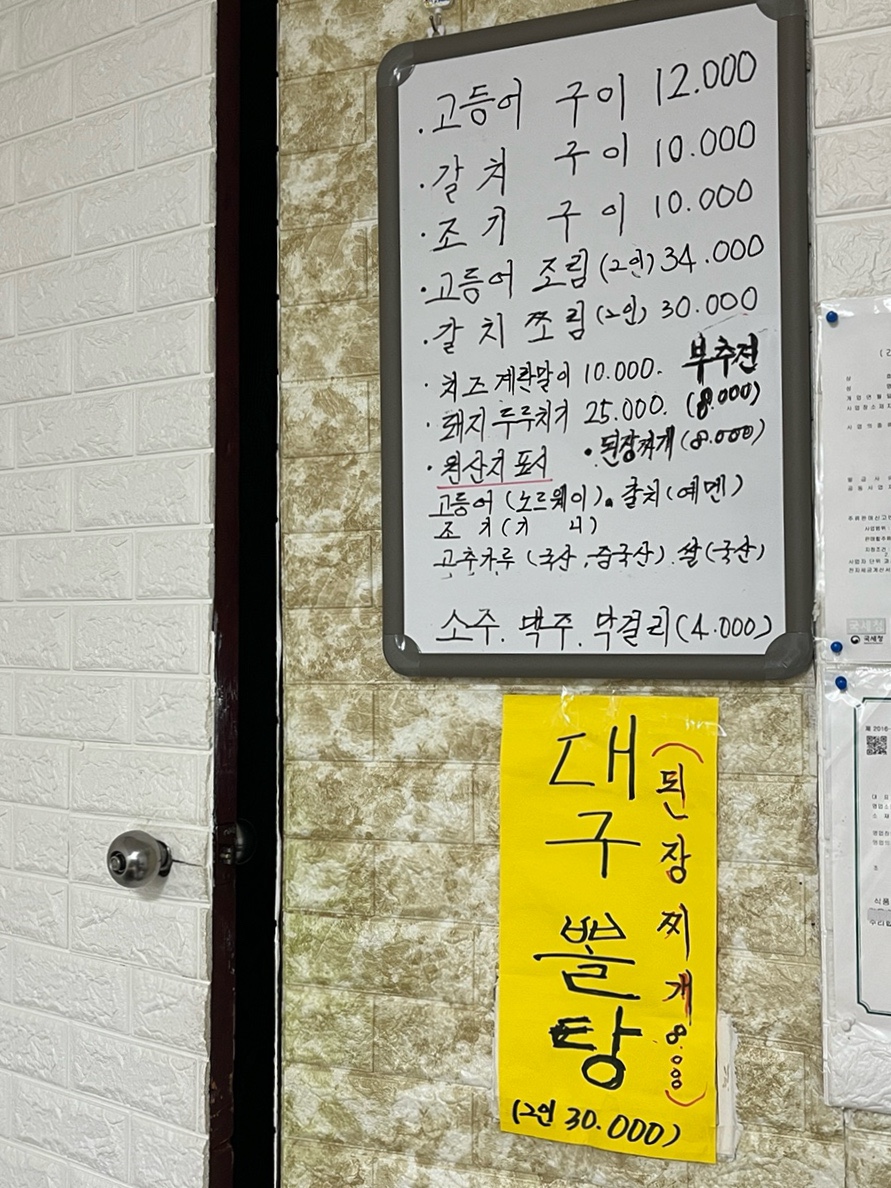 · 고등어 구이 12.000
· 갈치 구이 10.000
· 조기 구이 10.000
· 고등어 조림 (2인) 34.000
· 갈치 쪼림 (2인) 30.000
· 치즈계란말이 10.000. 부추전
· 돼지두루치기 25.000. (8.000)
· 원산지 표시 • 된장찌개 (8.000)
고등어 (노르웨이). 갈치 (예멘)
조기 (기니)
고추가루 (국산, 중국산). 쌀 (국산)
소주. 맥주. 막걸리 (4.000)
대구뽈탕
(2인 30.000)
(된장찌개 8.000)
국세청